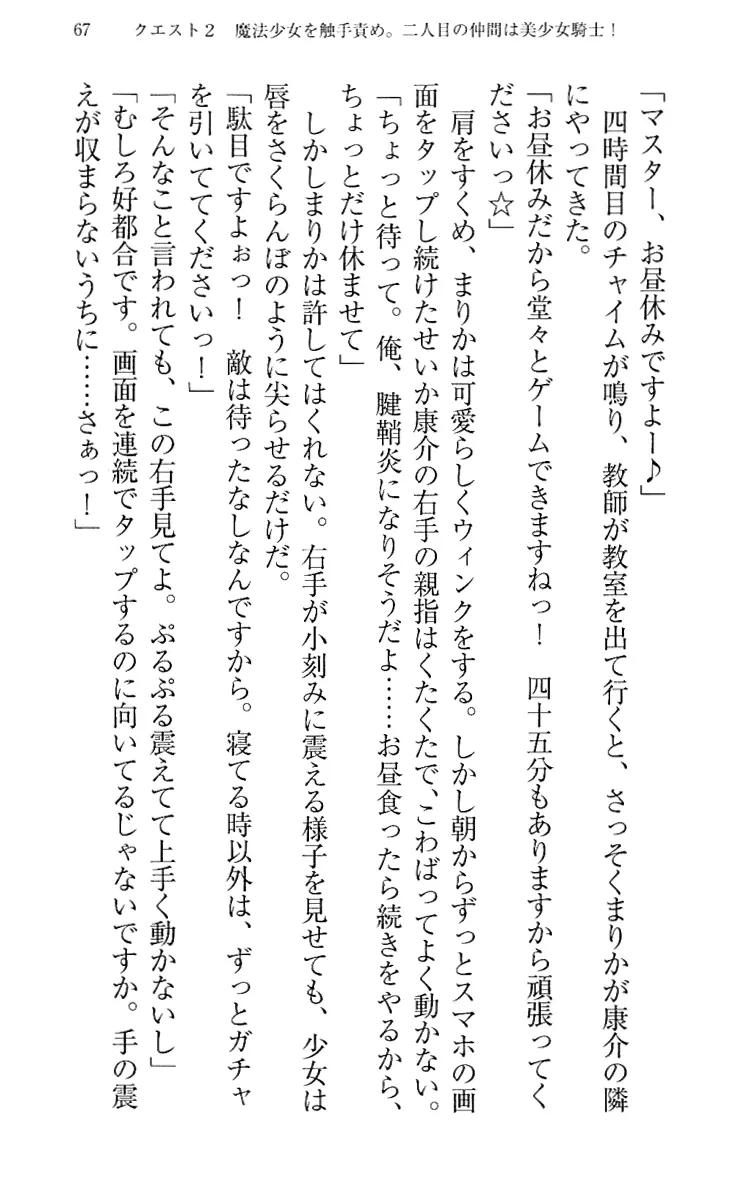 67 クエスト2 魔法少女を触手責め。二人目の仲間は美少女騎士！
「マスター、お昼休みですよー♪」
　四時間目のチャイムが鳴り、教師が教室を出て行くと、さっそくまりかが康介の隣
にやってきた。
「お昼休みだから堂々とゲームできますねっ！　四十五分もありますから頑張ってく
ださいっ☆」
　肩をすくめ、まりかは可愛らしくウィンクをする。しかし朝からずっとスマホの画
面をタップし続けたせいか康介の右手の親指はくたくたで、こわばってよく動かない。
「ちょっと待って。俺、腱鞘炎になりそうだよ……お昼食ったら続きをやるから、
ちょっとだけ休ませて」
　しかしまりかは許してはくれない。右手が小刻みに震える様子を見せても、少女は
唇をさくらんぼのように尖らせるだけだ。
「駄目ですよぉっ！　敵は待ったなしなんですから。寝てる時以外は、ずっとガチャ
を引いててくださいっ！」
「そんなこと言われても、この右手見てよ。ぷるぷる震えてて上手く動かないし」
「むしろ好都合です。画面を連続でタップするのに向いてるじゃないですか。手の震
えが収まらないうちに……さぁっ！」